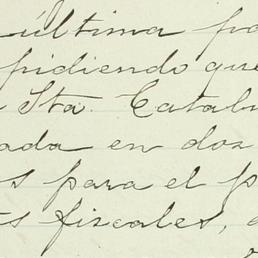 última pa
pidiendo que
Sta. Catal
ada en dos
s para el p
s fiscales,